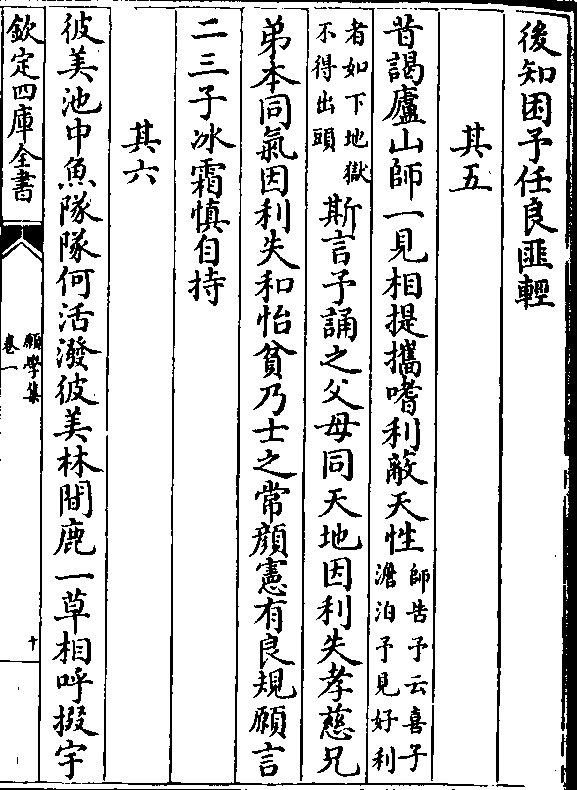 後知困予任良匪輕
其五
昔謁廬山師一見相提攜嗜利敵天性師告予云喜子澹泊予見好利
者如下地獄不得出頭斯言予誦之父母同天地因利失孝慈兄
弟本同氣因利失和怡貧乃士之常顔憲有良規願言
二三子冰霜慎自持
其六
彼美池中魚隊隊何活潑彼美林間鹿一草相呼掇宇
欽定四庫全書
願學集
卷一
十